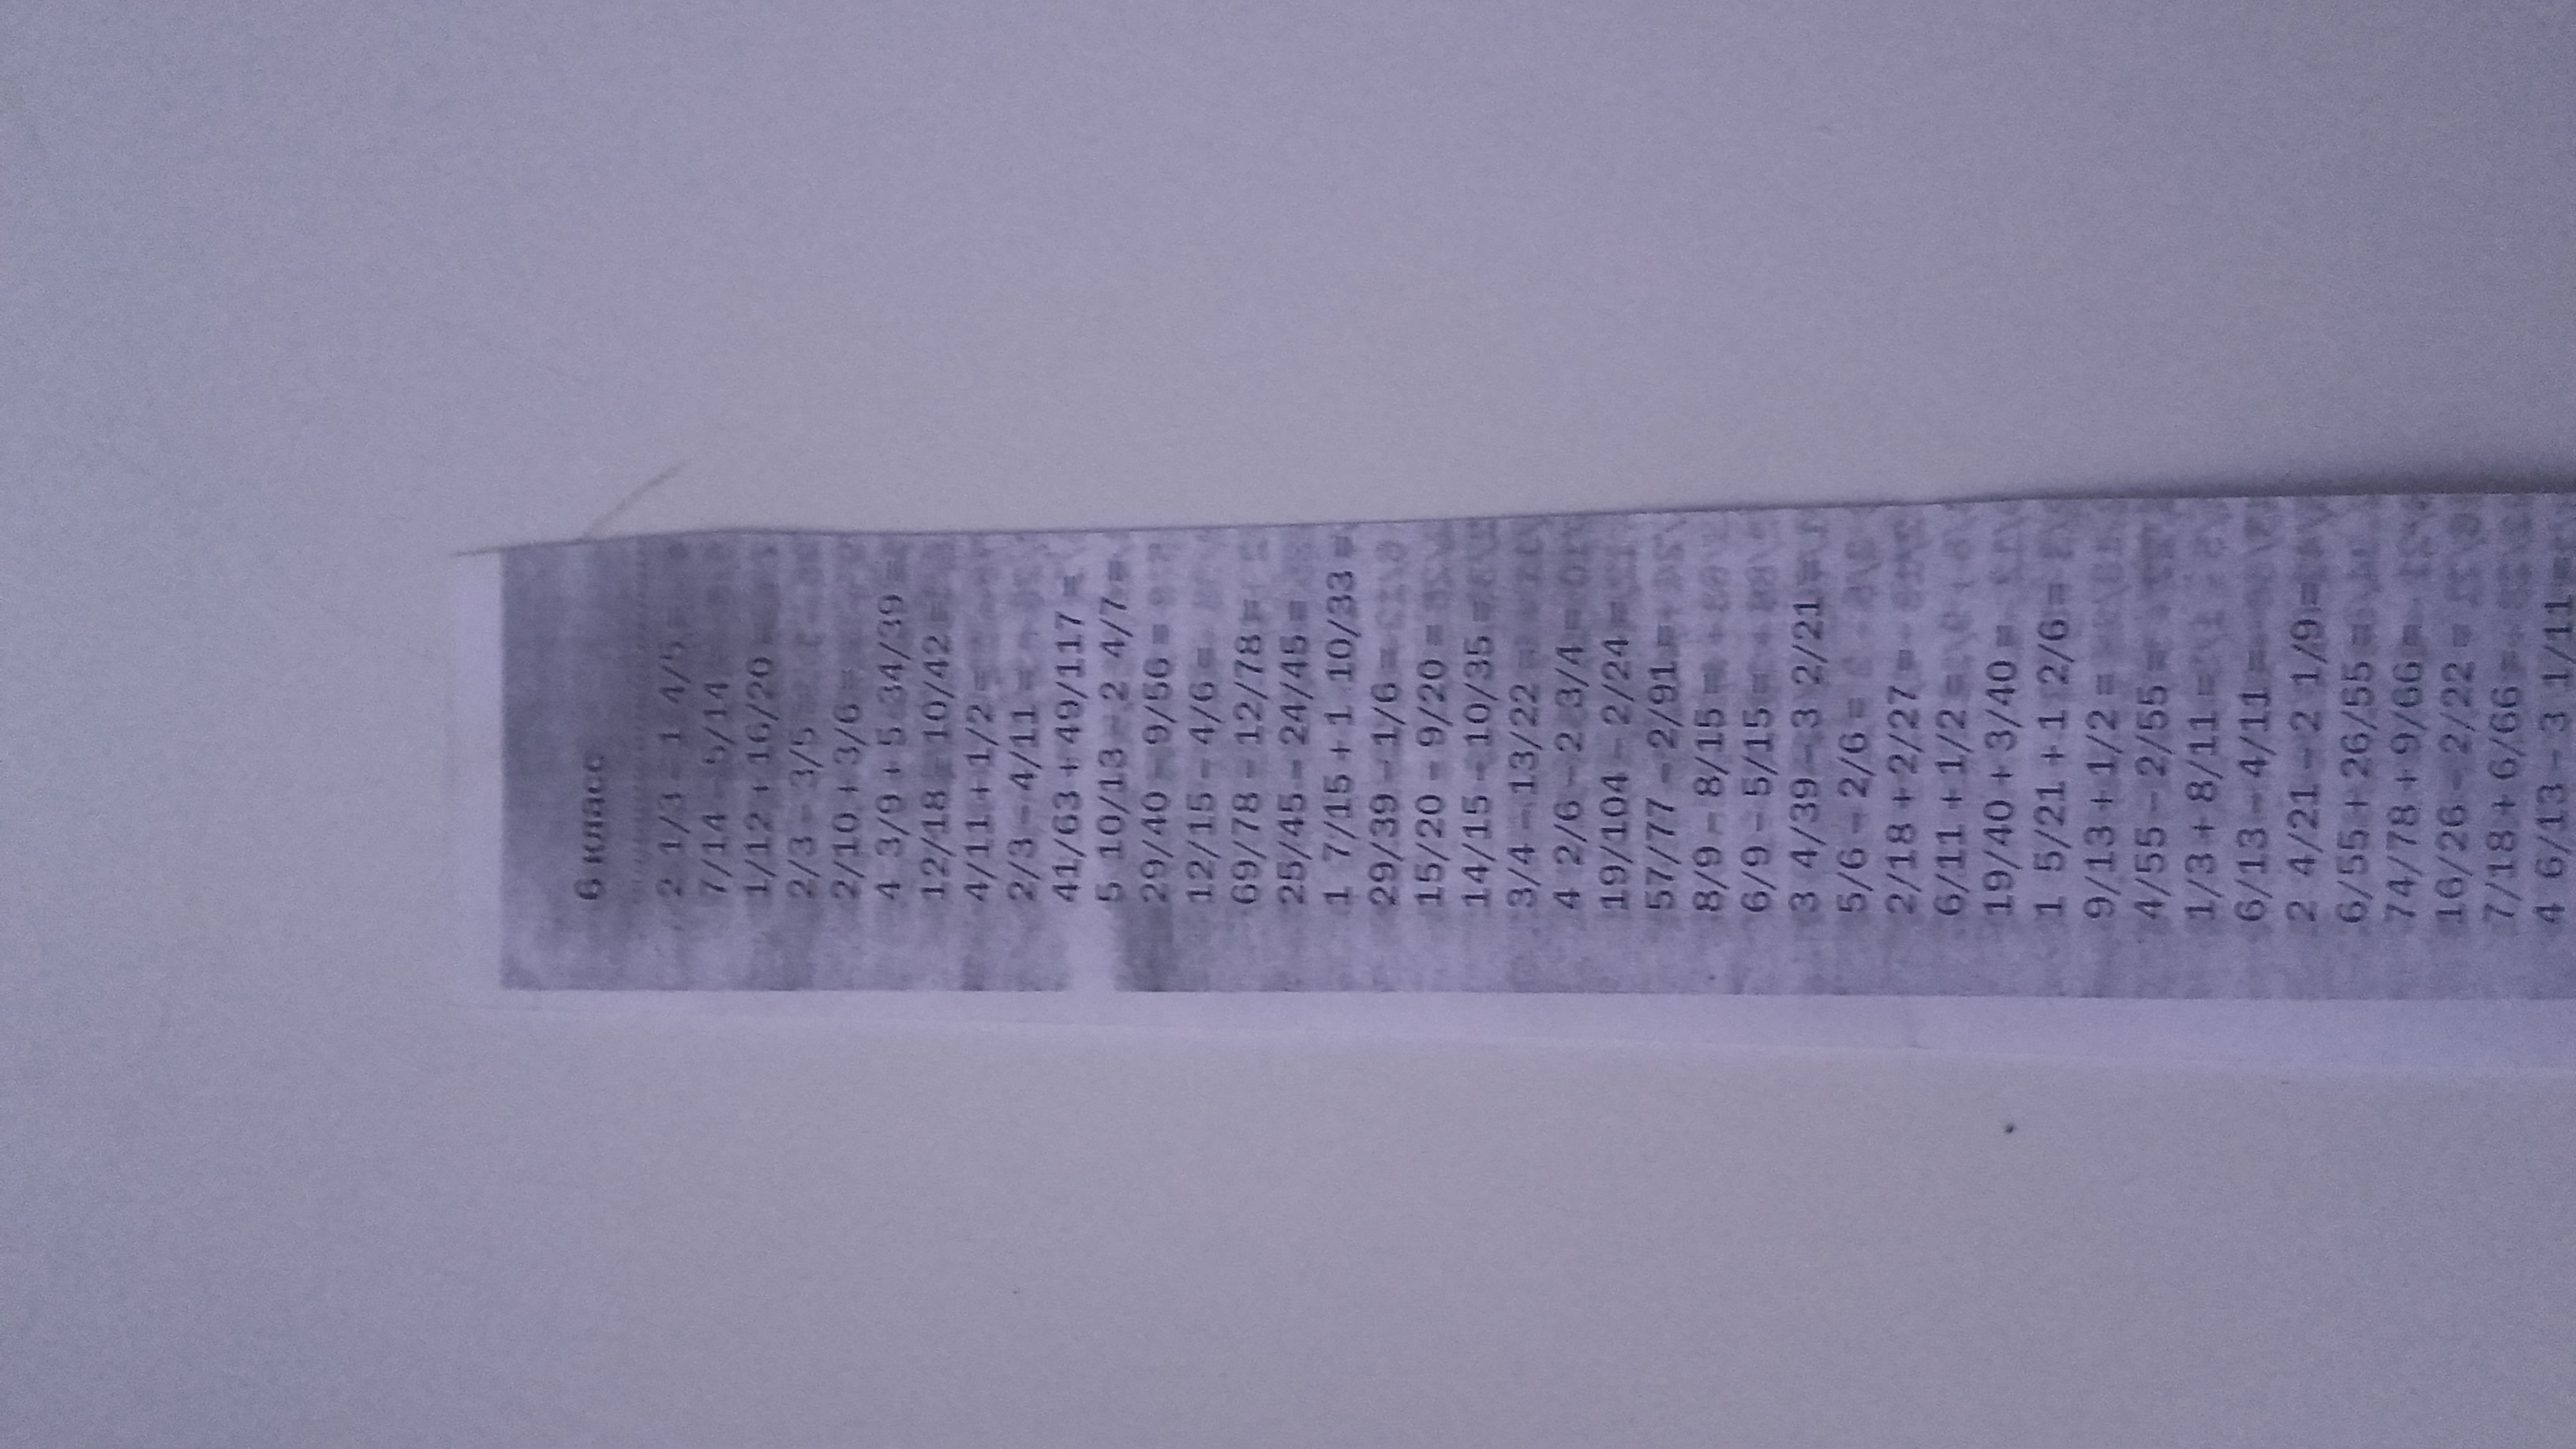 6 класс
2 1/3 - 1 4/5 =
7/14 - 5/14 =
1/12 + 16/20 =
2/3 - 3/5 =
2/10 + 3/6 =
4 3/9 + 5 34/39 =
12/18 - 10/42 =
4/11 + 1/2 =
2/3 - 4/11 =
41/63 + 49/117 =
5 10/13 - 2 4/7 =
29/40 - 9/56 =
12/15 - 4/6 =
69/78 - 12/78 =
25/45 - 24/45 =
1 7/15 + 1 10/33 =
29/39 - 1/6 =
15/20 - 9/20 =
14/15 - 10/35 =
3/4 - 13/22 =
4 2/6 - 2 3/4 =
19/104 - 2/24 =
57/77 - 2/91 =
8/9 - 8/15 =
6/9 - 5/15 =
3 4/39 - 3 2/21 =
5/6 - 2/6 =
2/18 + 2/27 =
6/11 + 1/2 =
19/40 + 3/40 =
1 5/21 + 1 2/6 =
9/13 + 1/2 =
4/55 - 2/55 =
1/3 + 8/11 =
6/13 - 4/11 =
2 4/21 - 2 1/9 =
6/55 + 26/55 =
74/78 + 9/66 =
16/26 - 2/22 =
7/18 + 6/66 =
4 6/13 - 3 1/11 =